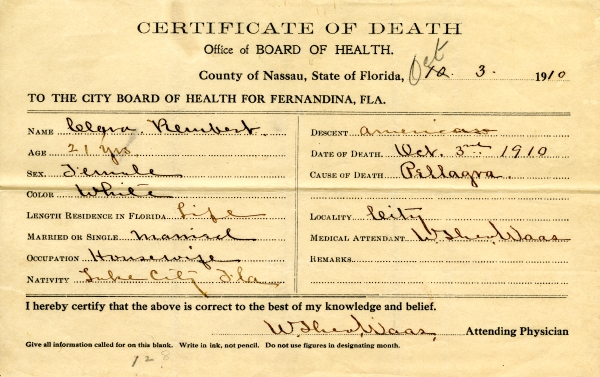 CERTIFICATE OF DEATH
Office of BOARD OF HEALTH.
County of Nassau, State of Florida, Oct 10. 3. 1910
TO THE CITY BOARD OF HEALTH FOR FERNANDINA, FLA.
NAME Rembert.
AGE 21 yrs
SEX Female
COLOR White
LENGTH RESIDENCE IN FLORIDA Life
MARRIED OR SINGLE Married
OCCUPATION Housewife
NATIVITY Lake City Fla
DESCENT American
DATE OF DEATH Oct. 3rd 1910
CAUSE OF DEATH Pellagra.
LOCALITY City
MEDICAL ATTENDANT W. Theo. Waas
REMARKS
I hereby certify that the above is correct to the best of my knowledge and belief.
W. Theo. Waas, Attending Physician
Give all information called for on this blank. Write in ink, not pencil. Do not use figures in designating month.
128